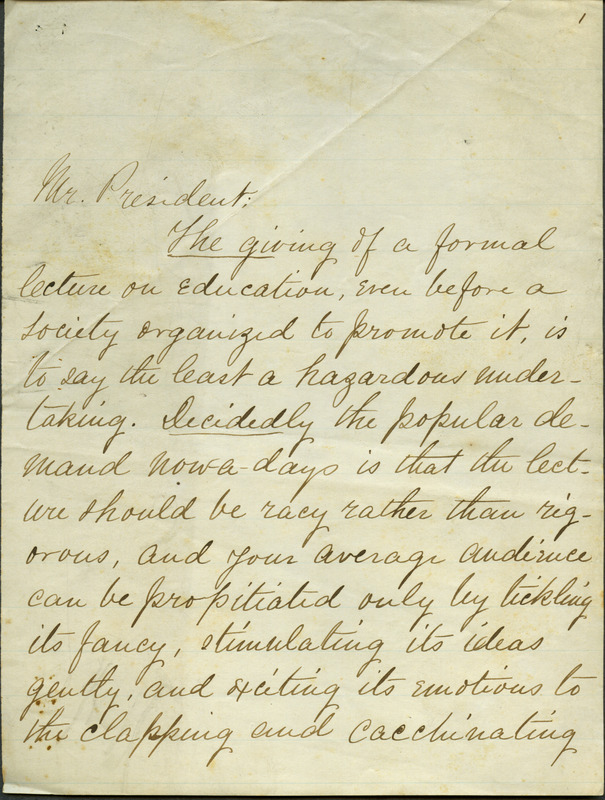 1
Mr. President:
The giving of a formal
lecture on education, even before a
society organized to promote it, is
to say the least a hazardous under-
taking. Decidedly the popular de-
mand nowa-days is that the lect-
ure should be racy rather than rig-
orous, and your average audience
can be propitiated only by tickling
its fancy, stimulating its ideas
gently, and exciting its emotions to
the clapping and cacchinating